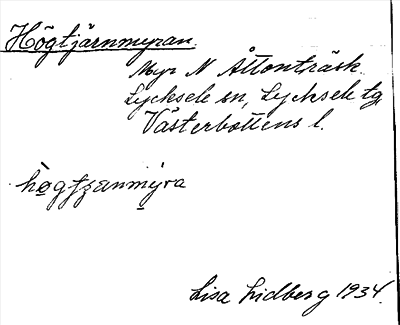 Högtjärnmyran.
Myr N Åttonträsk.
Lycksele sn, Lycksele tg
Västerbottens l.
hògtjanmy̱ra
Lisa Lidberg 1934.